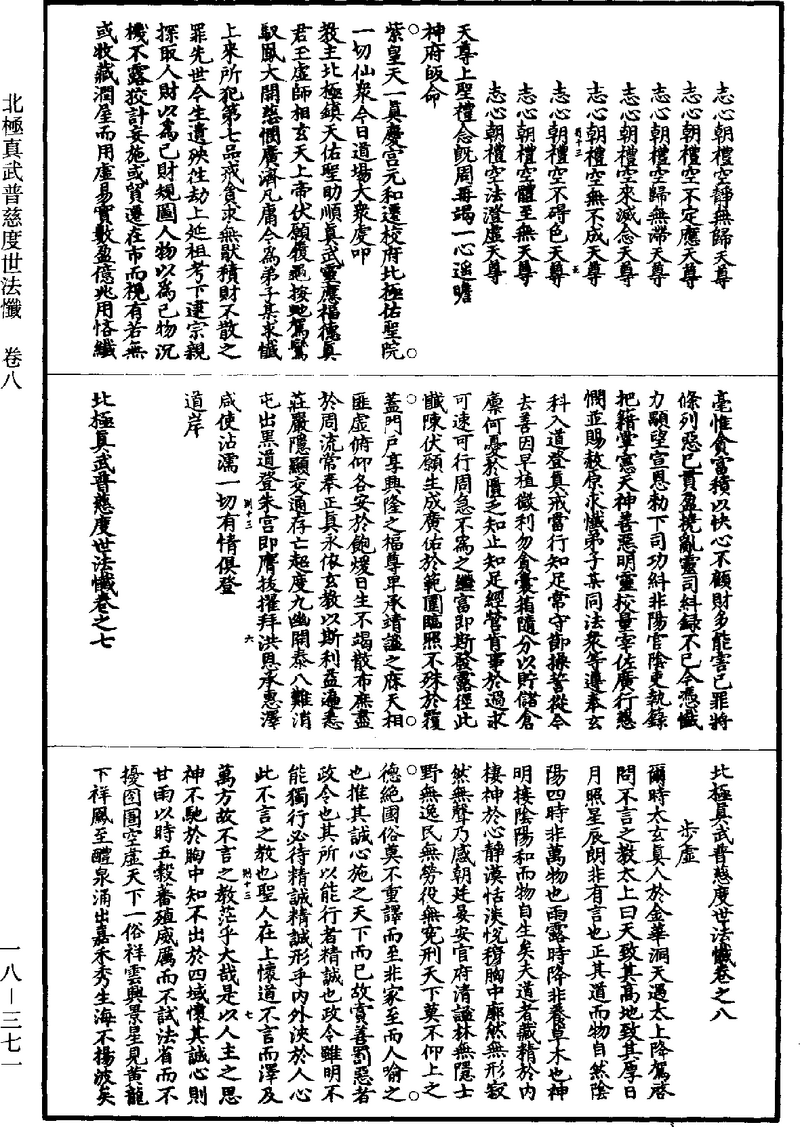 北極真武普慈度世法懺　卷八
一八－三七一
志心朝禮空靜無歸天尊
志心朝禮空不定應天尊
志心朝禮空歸無滯天尊
志心朝禮空來滅念天尊
志心朝禮空無不成天尊
志心朝禮空不碍色天尊
志心朝禮空體至無天尊
志心朝禮空法澄虛天尊
天尊上聖禮念旣周再竭一心遥瞻
神府皈命
紫皇天一真慶宮元和遷校府北極佑聖院
一切仙衆今日道場大衆虔叩
教主北極鎮天佑聖助順真武靈應福德真
君玉虛師相玄天上帝伏願履龜按虵駕鸞
馭鳳大開慈憫廣濟凡庸今為弟子某求懺
上來所犯第七品戒貪求無猒積財不散之
罪先世今生遺殃性劫上延祖考下逮宗親
探取人財以為己財規圖人物以爲己物沉
機不露狡計妄施或貿遷在市而視有若無
或收藏潤屋而用虛易實數盈億兆用悋纖
毫惟貪富積以快心不顧財多能害己罪將
條列惡已貫盈撓亂靈司糾録不已今憑懺
力顯望宣恩勑下司功糾非陽官陰吏執籙
把籍掌憲天神善惡明靈校量宰佐廣行慈
憫並賜赦原求懺弟子某同法衆等遵奉玄
科入道登真戒當行知足常守御操誓從今
去善因早植微利勿貪囊箱隨分以貯儲倉
廪何憂於匱乏知止知足經營肯事於過求
可速可行周急不爲之繼富即斯發露徑此
懺陳伏願生成廣佑於範圍臨照不殊於覆
蓋門戶享興隆之福尊卑承靖謐之庥天相
匪虛俯仰各安於飽煖日生不竭散布庶盡
於周流常奉正真永依玄教以斯利益遍悉
莊嚴隱顯交通存亡超度九幽開泰八難消
屯出黑道登朱宮即膺拔擢拜洪恩承惠澤
咸使沾濡一切有情俱登
道岸
北極真武普慈度世法懺卷之七
北極真武普慈度世法懺卷之八
步虛
爾時太玄真人於金華洞天遇太上降駕啓
問不言之教太上曰天致其高地致其厚日
月照星辰朗非有言也正其道而物自然陰
陽四時非萬物也雨露時降非養草木也神
明接陰陽和而物自生矣夫道者藏精於內
棲神於心靜漠恬淡悅穆胸中廓然無形寂
然無聲乃感朝廷晏安官府清謐林無隱士
野無逸民無勞役無寃刑天下莫不仰上之
德絶國俗莫不重譯而至非家至而人喻之
也推其誠心施之天下而已故賞善罰惡者
政令也其所以能行者精誠也政令雖明不
能獨行必待精誠精誠形乎內外浹於人心
此不言之教也聖人在上懷道不言而澤及
萬方故不言之教茫乎大哉是以人主之思
神不馳於胸中知不出於四域懷其誠心則
甘雨以時五穀蕃殖威厲而不試法省而不
擾囹圄空虛天下一俗祥雲興景星見黃龍
下祥鳳至醴泉涌出嘉禾秀生海不揚波矣